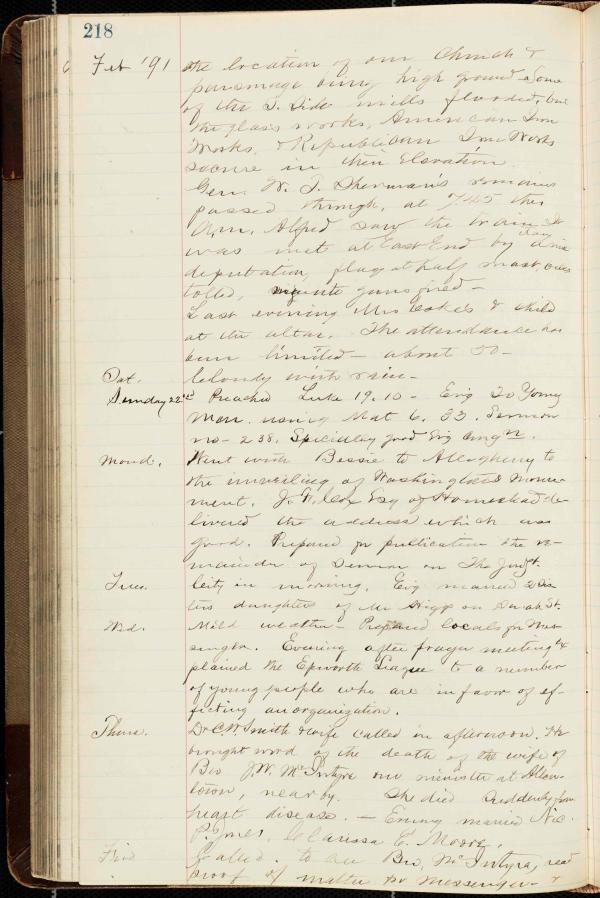 218
Feb '91 the location of our Church &
parsonage being high ground. Some
of the S. Side mills flooded, but
the glass works, American Iron
Works & Republican Iron Works
secure in their Elevation.
Gen. W. T. Sherman's remains
passed through, at 7.45 this
Am. Alfred saw the train. It
was met at East End by a
deputation, flag at half mast,
tolled, minute guns fired -
Last evening Mrs & child
at the altar. The attendance has
been limited - about 50 -
Sat. Cloudy with rain -
Sunday 22nd Preached Luke 19.10 - Evg To Young
Men using Mat 6. 33. Sermon
no - 238. Specially good Evg Congn.
Mond. Went with Bessie to Allegheny to
the unveiling of Washington's Monu-
ment. J. F. Cox Esq of Homestead de-
livered the address which was
good. Prepared for publication the re-
mainder of Sermon on The
Tues. City in morning. Evg married 2
daughters of Mr on Sarah St.
Wed. Mild weather - Prepared locals for Mes-
senger. Evening after prayer meeting ex-
plained the Epworth League to a number
of young people who are in favor of ef-
fecting an organization.
Thurs. Dr C. W. Smith & wife called in afternoon. He
brought word of the death of the wife of
Bro J. W. McIntyre our minister at Allen-
town, near by. She died suddenly from
heart disease. - Evening married Nic.
P. Jones, Clarissa E. Moory.
Frid Called to see Bro. McIntyre, read
proof of matter for Messenger - &